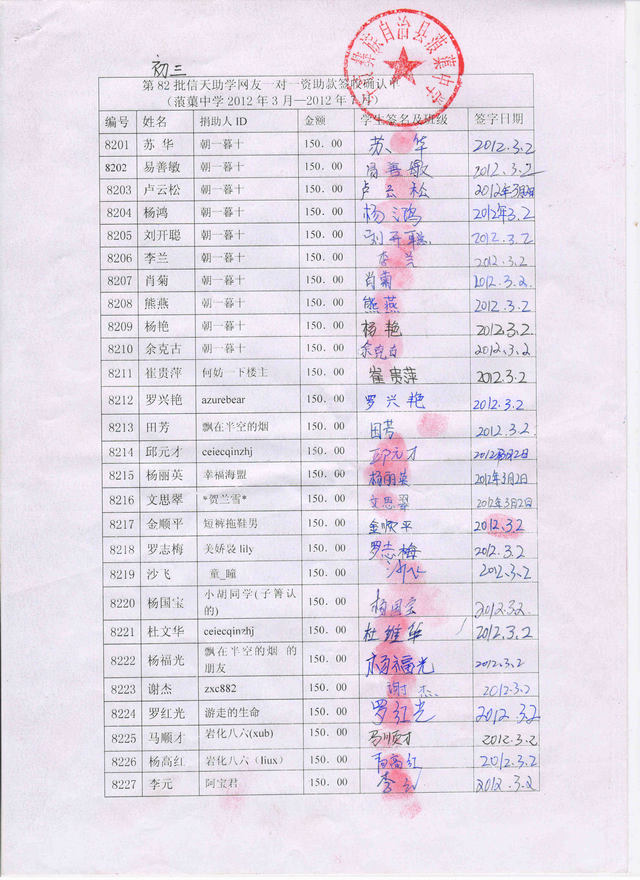 初三
彝族自治县菠萝中学
第82批信天助学网友一对一资助款签收确认单
（菠萝中学2012年3月—2012年7月）
编号 姓名 捐助人ID 金额 学生签名及班级 签字日期
8201 苏 华 朝一暮十 150.00 苏 华 2012.3.2
8202 易善敏 朝一暮十 150.00 易善敏 2012.3.2
8203 卢云松 朝一暮十 150.00 卢云松 2012年3月2日
8204 杨鸿 朝一暮十 150.00 杨鸿 2012年3.2
8205 刘开聪 朝一暮十 150.00 刘开聪 2012.3.2
8206 李兰 朝一暮十 150.00 李兰 2012.3.2
8207 肖菊 朝一暮十 150.00 肖菊 2012.3.2
8208 熊燕 朝一暮十 150.00 熊燕 2012.3.2
8209 杨艳 朝一暮十 150.00 杨艳 2012.3.2
8210 余克古 朝一暮十 150.00 余克古 2012.3.2
8211 崔贵萍 何妨一下楼主 150.00 崔贵萍 2012.3.2
8212 罗兴艳 azurebear 150.00 罗兴艳 2012.3.2
8213 田芳 飘在半空的烟 150.00 田芳 2012.3.2
8214 邱元才 ceiecqinzhj 150.00 邱元才 2012年3月2日
8215 杨丽英 幸福海盟 150.00 杨丽英 2012年3月2日
8216 文思翠 *贺兰雪* 150.00 文思翠 2012年3月2日
8217 金顺平 短裤拖鞋男 150.00 金顺平 2012.3.2
8218 罗志梅 美娇袋lily 150.00 罗志梅 2012.3.2
8219 沙飞 童_瞳 150.00 沙飞 2012.3.2
8220 杨国宝 小胡同学(子箐认的) 150.00 杨国宝 2012.3.2
8221 杜文华 ceiecqinzhj 150.00 杜维华 2012.3.2
8222 杨福光 飘在半空的烟 的朋友 150.00 杨福光 2012.3.2
8223 谢杰 zxc882 150.00 谢杰 2012.3.2
8224 罗红光 游走的生命 150.00 罗红光 2012.3.2
8225 马顺才 岩化八六(xub) 150.00 马顺才 2012.3.2
8226 杨高红 岩化八六（liux） 150.00 杨高红 2012.3.2
8227 李元 阿宝君 150.00 李元 2012.3.2